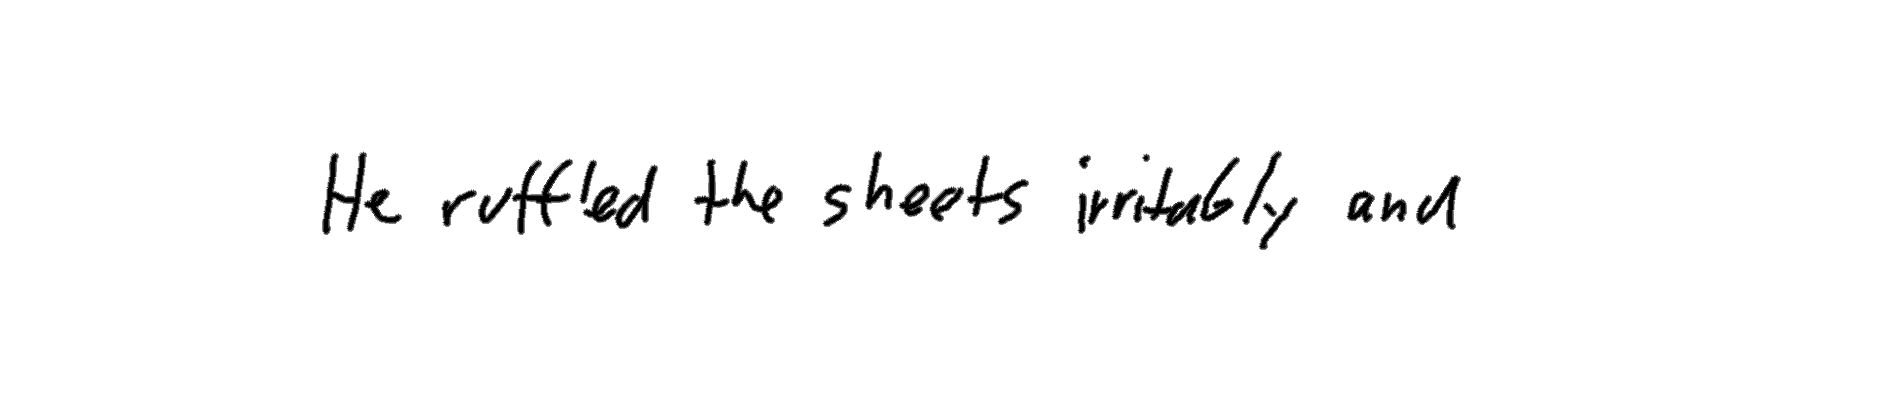 He ruffled the sheets irritably and